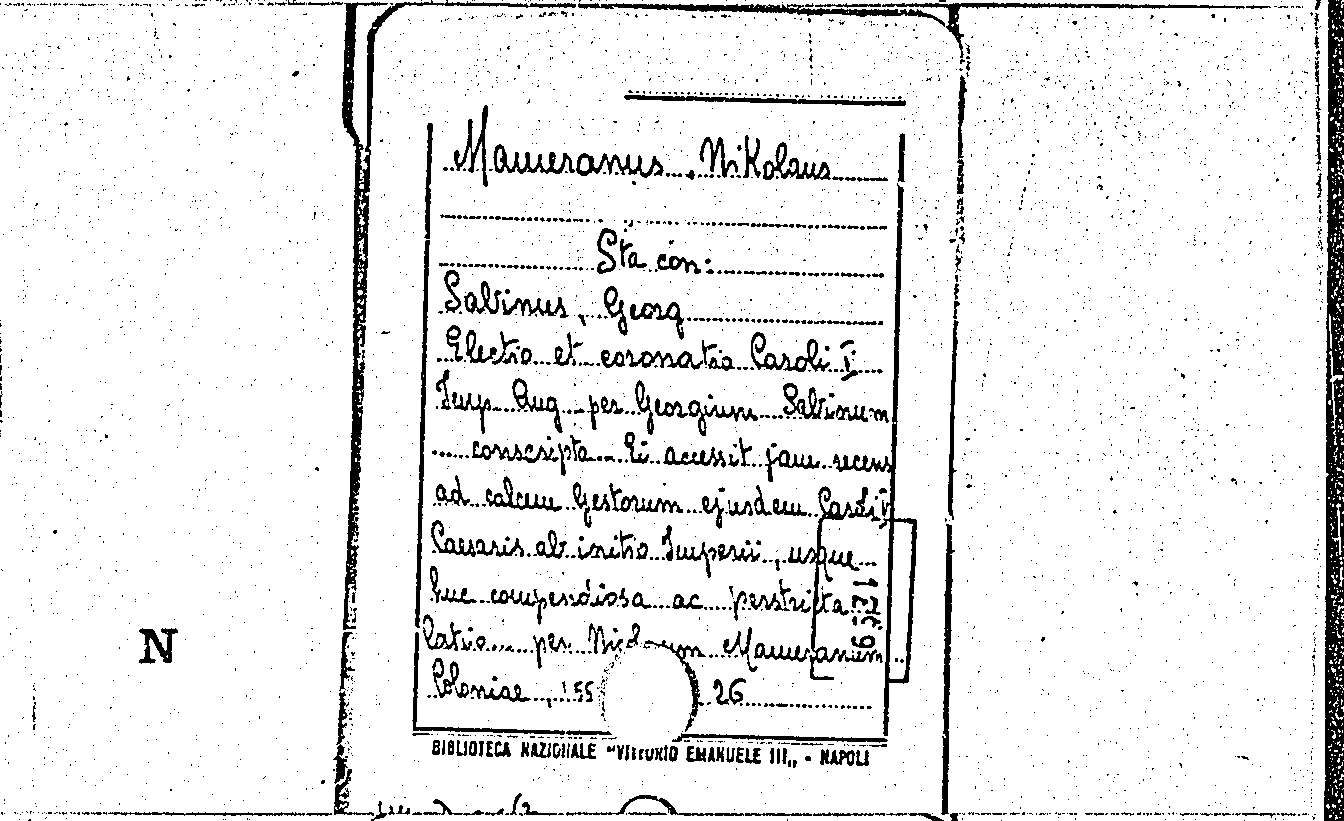 Mameranus, Nikolaus
Sta con:
Sabinus, Georg
Electio et coronatio Caroli V
Imp Aug per Georgium Sabinum
.... conscripta... Ei accessit jam recens
ad calcem Gestorum ejusdem Caroli V
Caesaris ab initio Imperii, usque...
huc compendiosa ac perstricta
latio.... per Mameranum
Coloniae, 155 26
BIBLIOTECA NAZIONALE "VITTORIO EMANUELE III„ - NAPOLI
N